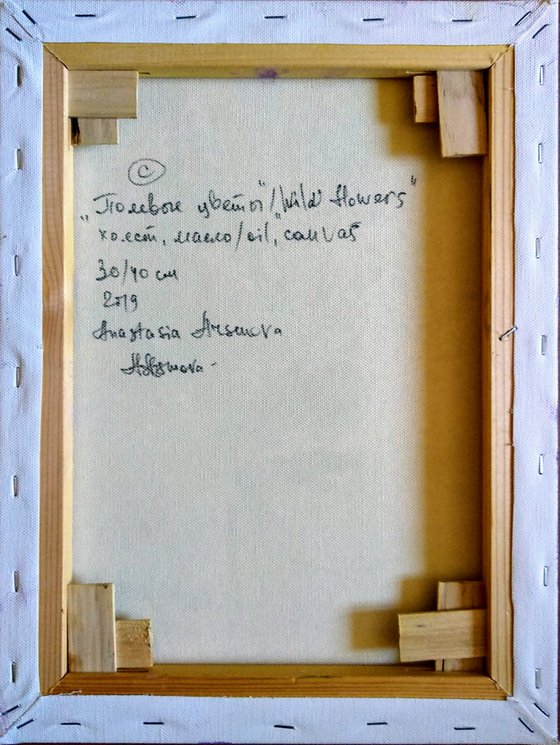 ©
„Полевые цветы"/„Wild flowers"
холст, масло/oil, canvas
30/40 см
2019
Anastasia Arsenova